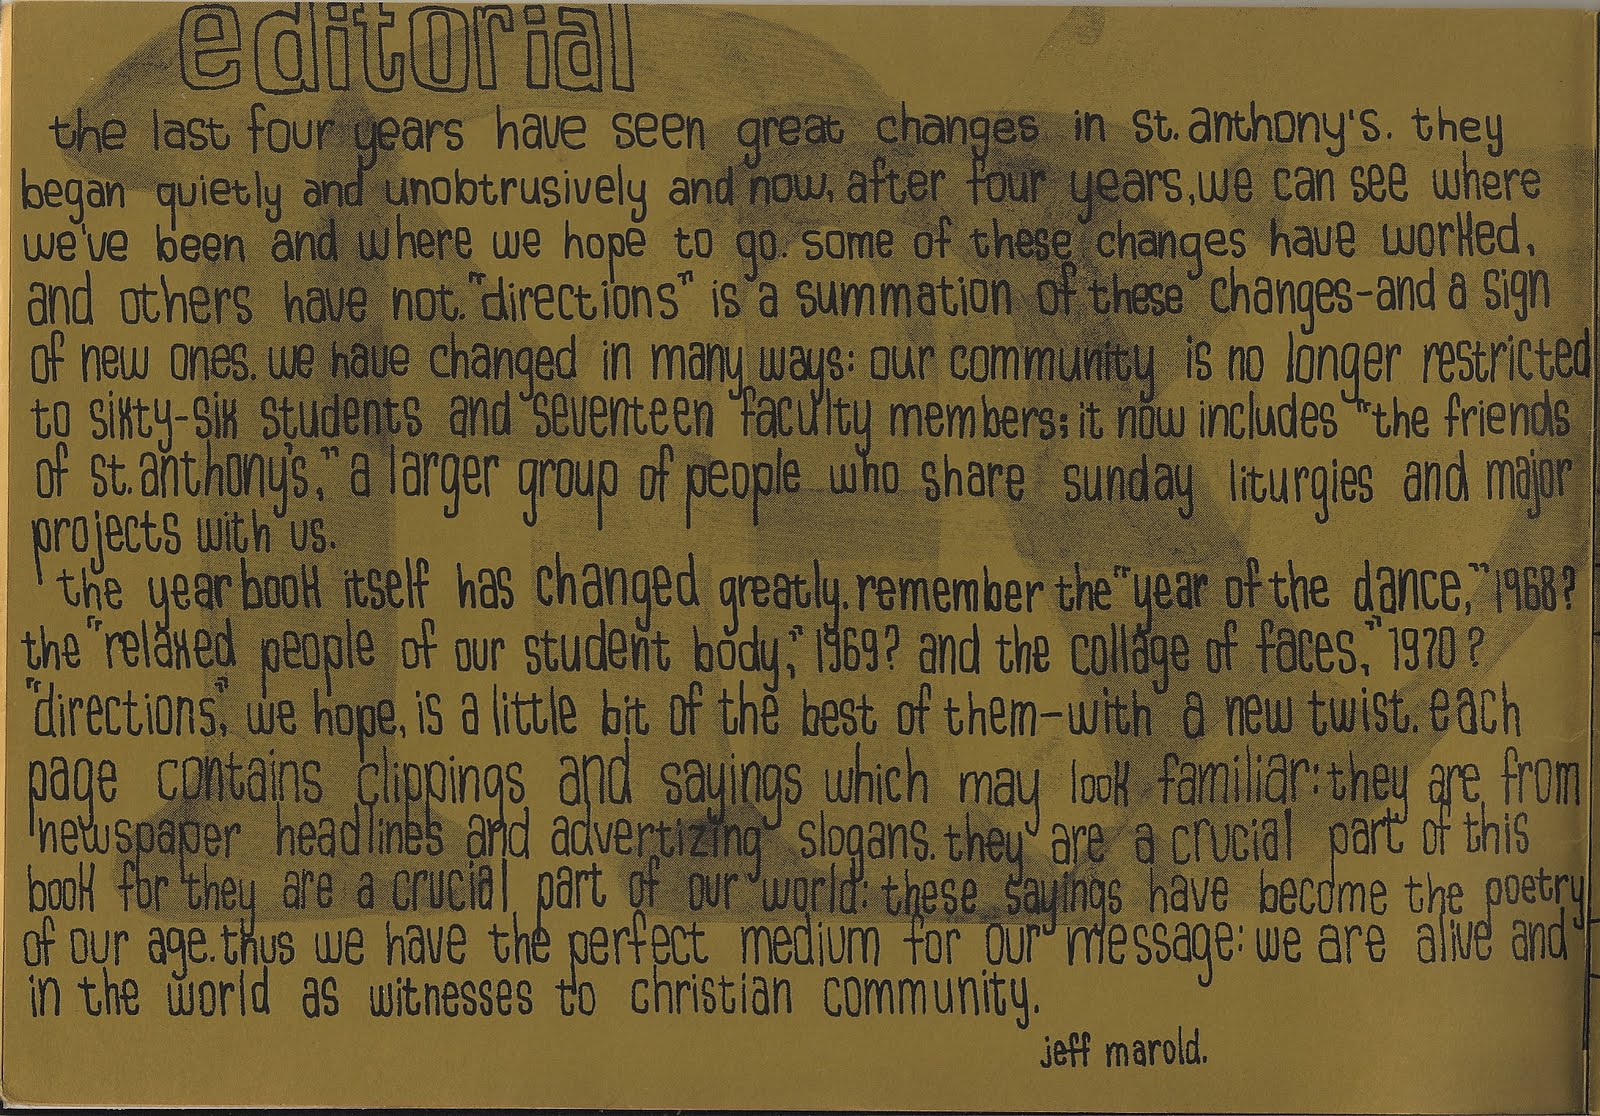 editorial
the last four years have seen great changes in st. anthony's. they
began quietly and unobtrusively and now, after four years, we can see where
we've been and where we hope to go. some of these changes have worked,
and others have not. "directions" is a summation of these changes-and a sign
of new ones. we have changed in many ways: our community is no longer restricted
to sixty-six students and seventeen faculty members; it now includes "the friends
of st. anthony's," a larger group of people who share sunday liturgies and major
projects with us.
the year book itself has changed greatly. remember the "year of the dance," 1968?
the "relaxed people of our student body," 1969? and the collage of faces," 1970?
"directions", we hope, is a little bit of the best of them-with a new twist. each
page contains clippings and sayings which may look familiar: they are from
newspaper headlines and advertizing slogans. they are a crucial part of this
book for they are a crucial part of our world: these sayings have become the poetry
of our age. thus we have the perfect medium for our message: we are alive and
in the world as witnesses to christian community.
jeff marold.